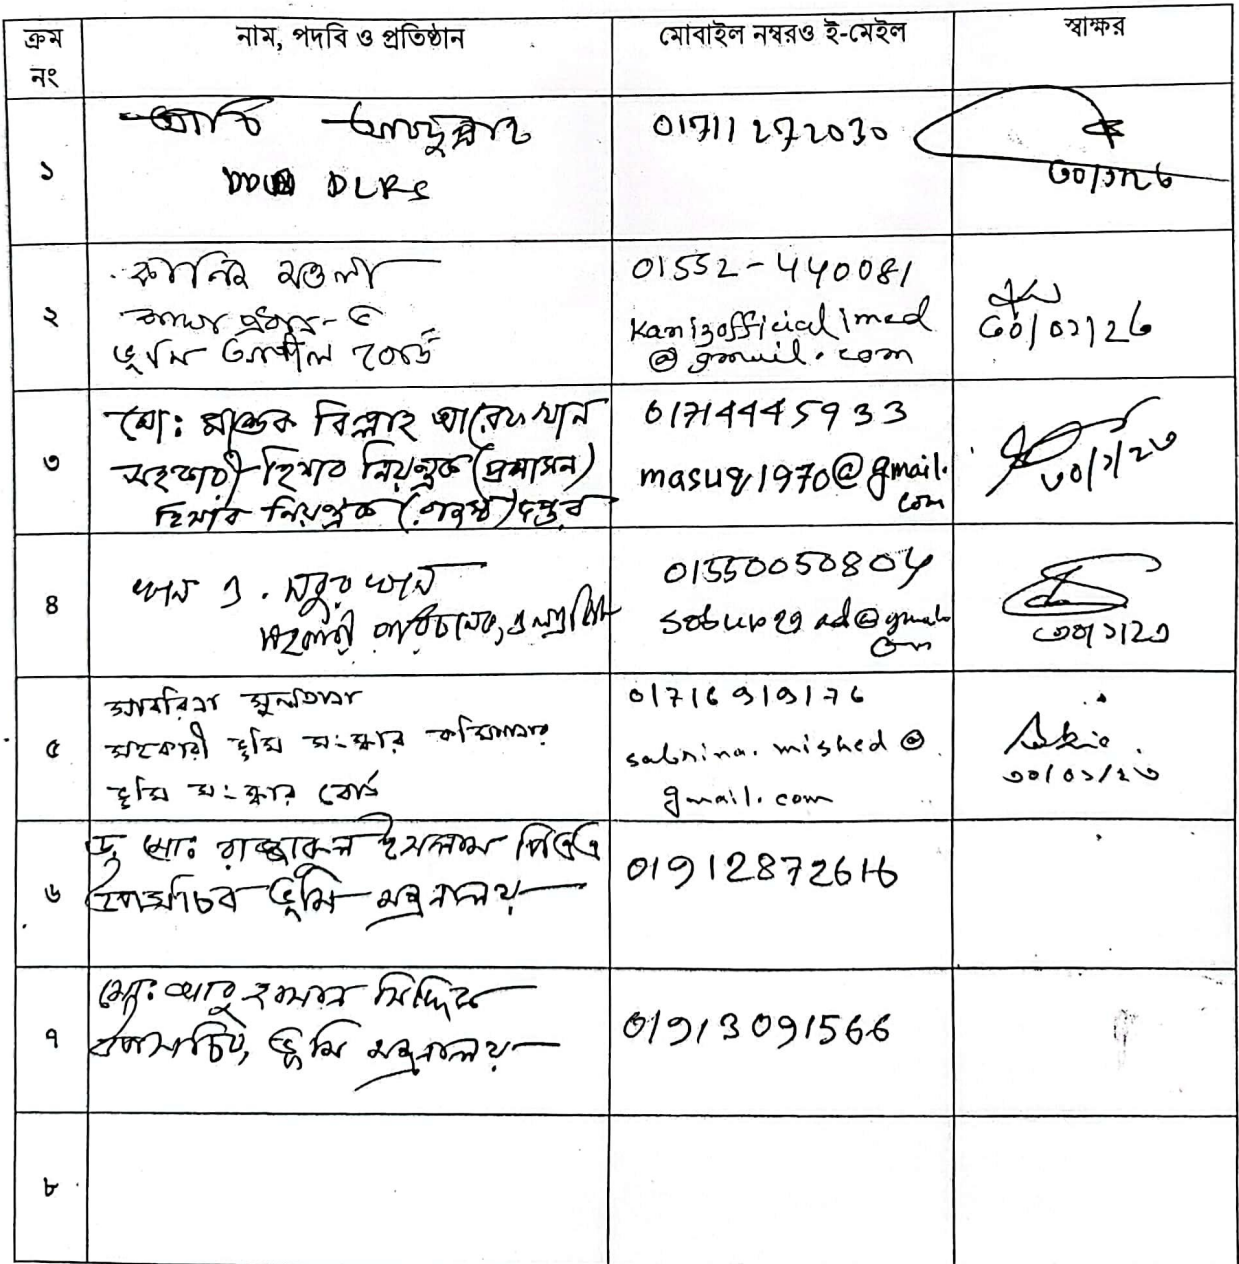 ক্রম নং
নাম, পদবি ও প্রতিষ্ঠান
মোবাইল নম্বরও ই-মেইল
স্বাক্ষর
১
আবদুল্লাহ
DLRS
01711272030
২
শাখা প্রধান-৫
ভূমি আপীল বোর্ড
01552-440081
kanizofficialimed
@gmail.com
৩০/০১/26
৩
মো: মাশুক বিল্লাহ আরেফ খান
সহকারী হিসাব নিয়ন্ত্রক (প্রশাসন)
হিসাব নিয়ন্ত্রক (রাজস্ব) দপ্তর
01714445933
masuq1970@gmail.
com
৩০/১/২৩
৪
সহকারী পরিচালক,
01550050804
৩০/১/২৩
৫
সাবরিনা সুলতানা
সহকারী ভূমি সংস্কার কমিশনার
ভূমি সংস্কার বোর্ড
01716919176
sabrina.mished@
gmail.com
৩০/০১/২৩
৬
ড. মো: রাজ্জাকুল ইসলাম পিএএ
উপসচিব ভূমি মন্ত্রণালয়
01912872616
৭
মো: আবু হাসান সিদ্দিক
উপসচিব, ভূমি মন্ত্রণালয়
01913091566
৮